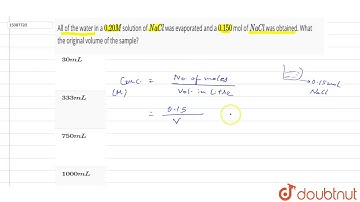 15087720
All of the water in a 0.20M solution of NaCl was evaporated and a 0.150 mol of NaCl was obtained. What
the original volume of the sample?
30mL
333mL
750mL
1000mL
Conc. = No of moles / Vol. in Litre
(M)
= 0.15 / V
0.15 mol
NaCl
doubtnut